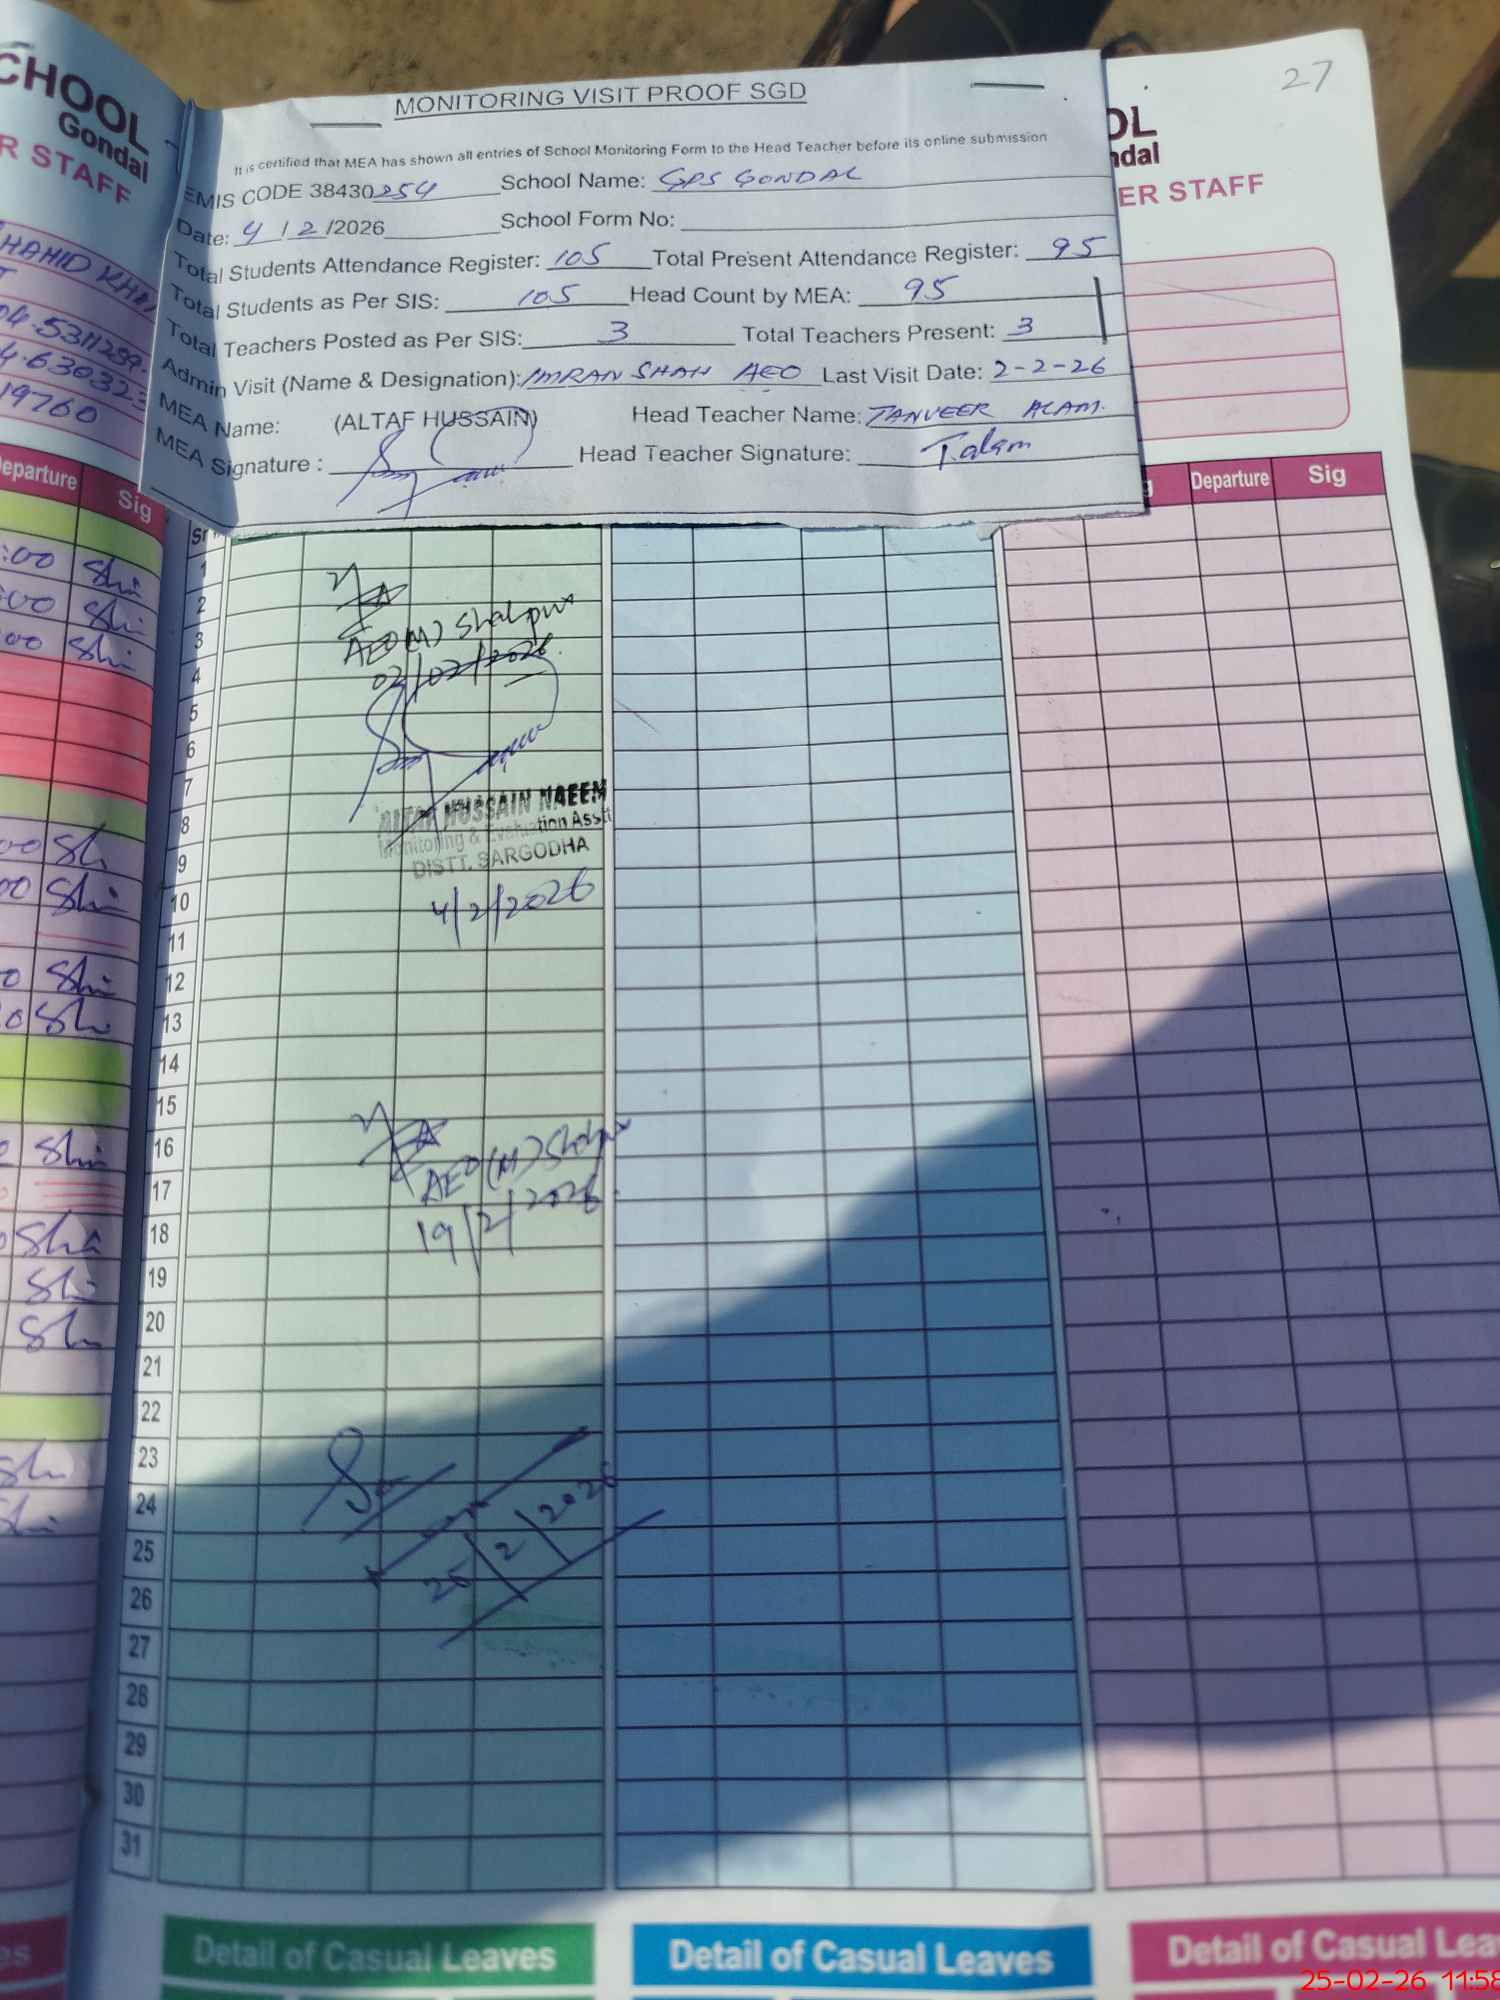 CHOOL
Gondal
R STAFF
27
OL
ndal
ER STAFF
MONITORING VISIT PROOF SGD
It is certified that MEA has shown all entries of School Monitoring Form to the Head Teacher before its online submission
EMIS CODE 38430254 School Name: GPS GONDAL
Date: 4/2/2026 School Form No:
Total Students Attendance Register: 105 Total Present Attendance Register: 95
Total Students as Per SIS: 105 Head Count by MEA: 95
Total Teachers Posted as Per SIS: 3 Total Teachers Present: 3
Admin Visit (Name & Designation): IMRAN SHAH AEO Last Visit Date: 2-2-26
MEA Name: (ALTAF HUSSAIN) Head Teacher Name: TANVEER ALAM.
MEA Signature: Head Teacher Signature: T.alam
19760
eparture Sig
:00 Shi
:00 Shi
00 Shi
Departure Sig
1
2
3
4
5
6
7
8
9
10
11
12
13
14
15
16
17
18
19
20
21
22
23
24
25
26
27
28
29
30
31
AEO(M) Shahpur
02/02/2026
ALTAF HUSSAIN NAEEM
Monitoring & Evaluation Asstt
DISTT. SARGODHA
4/2/2026
AEO(M) Shahpur
19/2/2026
25/2/2026
es
Detail of Casual Leaves
Detail of Casual Leaves
Detail of Casual Lea
25-02-26 11:58